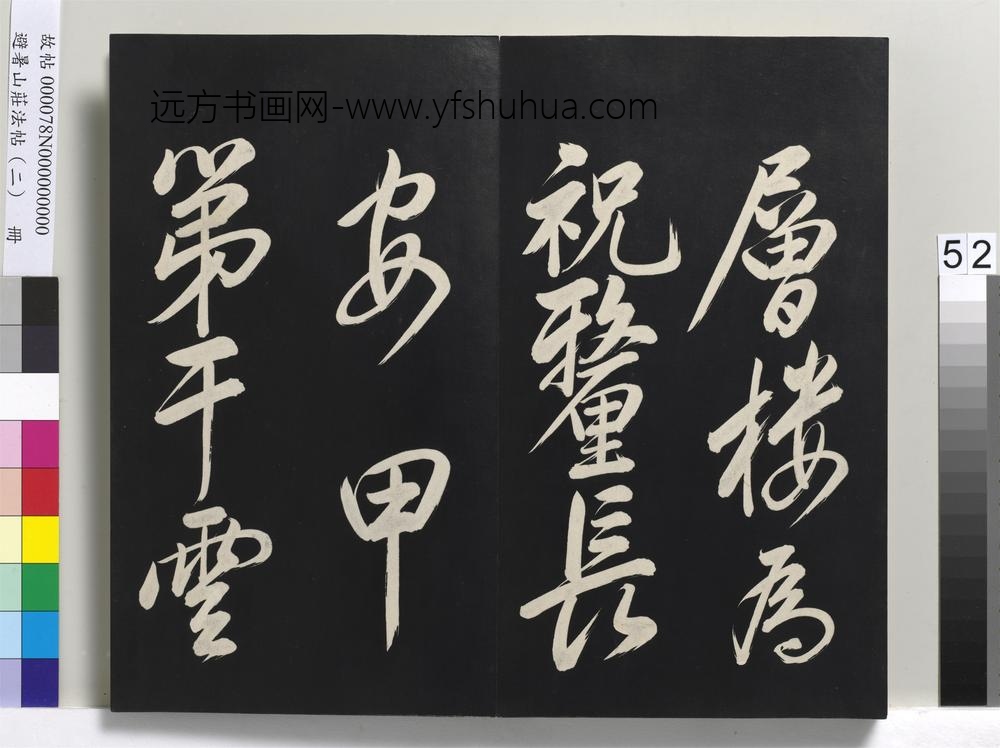 层楼為
祝釐長
安甲
第干雲
远方书画网-www.yfshuhua.com
故帖 000078N000000000
避暑山莊法帖（二） 冊
52